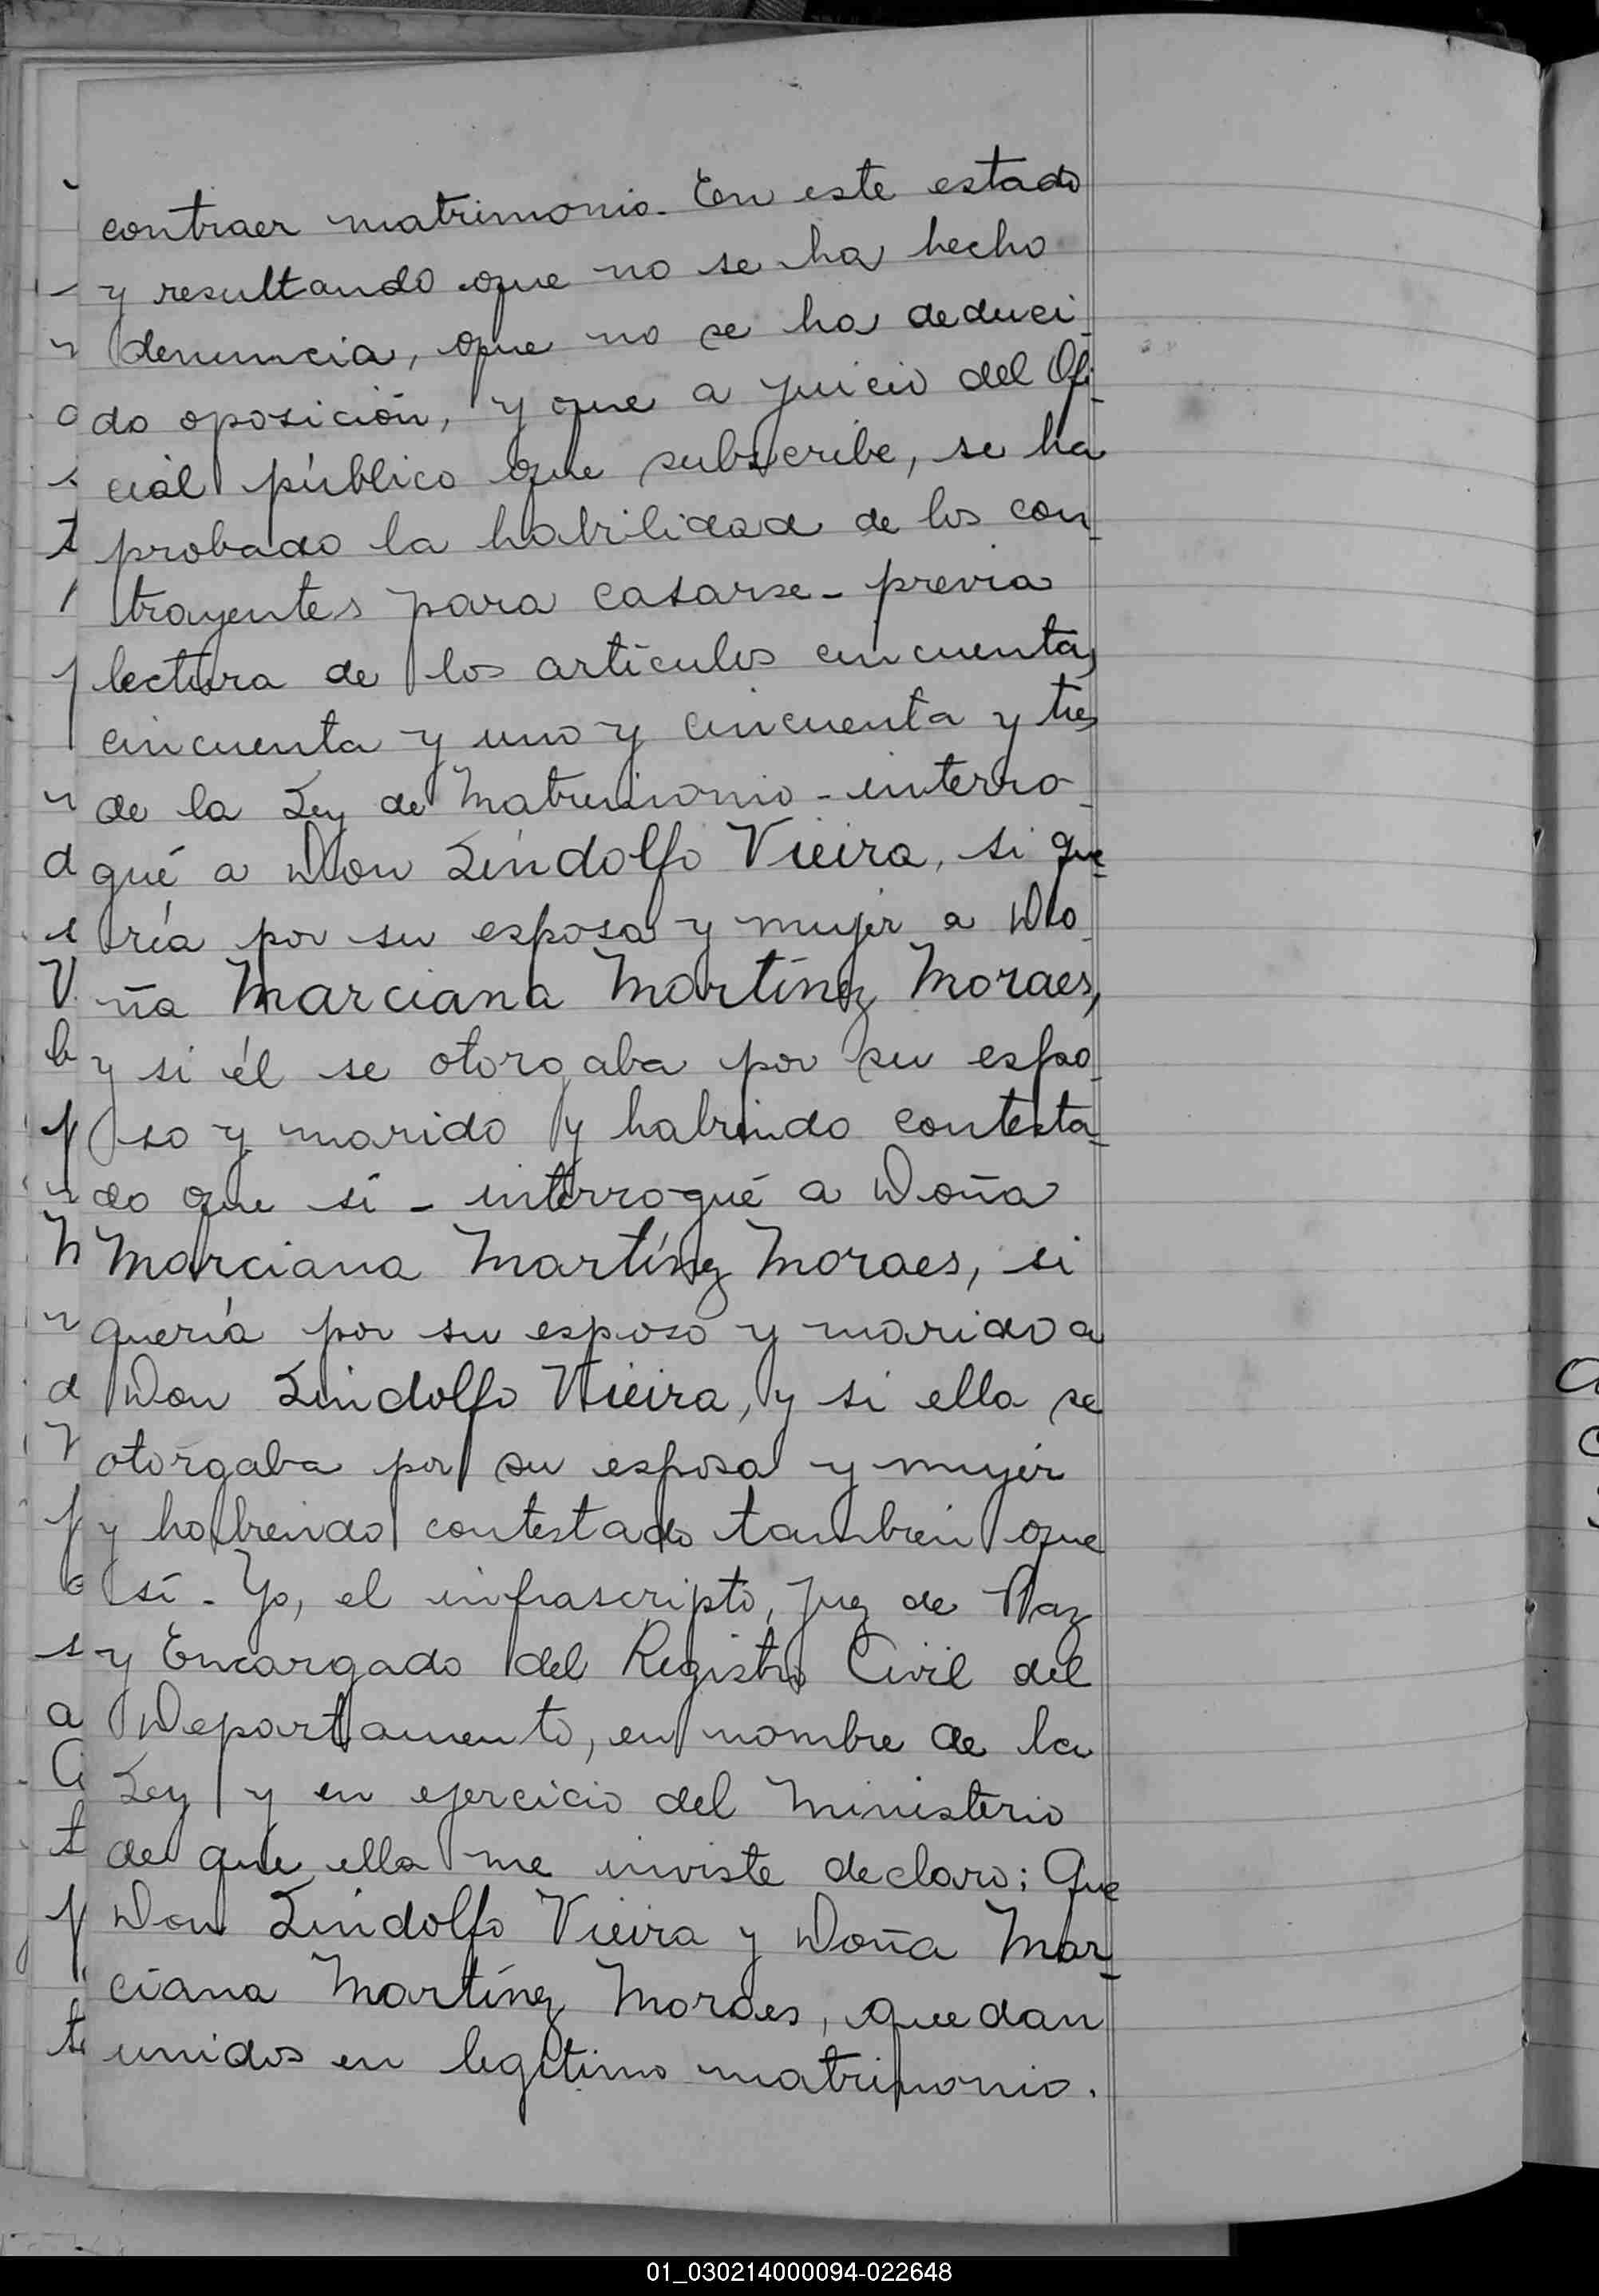 contraer matrimonio. En este estado
y resultando que no se ha hecho
denuncia, que no se ha deduci-
do oposición, y que a juicio del Ofi-
cial público que subscribe, se ha
probado la habilidad de los con-
trayentes para casarse - previa
lectura de los artículos cincuenta,
cincuenta y uno y cincuenta y tres
de la Ley de Matrimonio - interro-
gué a Don Lindolfo Vieira, si que-
ría por su esposa y mujer a Do-
ña Marciana Martínez Moraes,
y si él se otorgaba por su espo-
so y marido y habiendo contesta-
do que sí - interrogué a Doña
Marciana Martínez Moraes, si
quería por su esposo y marido a
Don Lindolfo Vieira, y si ella se
otorgaba por su esposa y mujer
y habiendo contestado también que
sí - Yo, el infrascripto, Juez de Paz
y Encargado del Registro Civil del
Departamento, en nombre de la
Ley y en ejercicio del Ministerio
de que ella me inviste declaro; Que
Don Lindolfo Vieira y Doña Mar-
ciana Martínez Moraes, quedan
unidos en legítimo matrimonio.
01_030214000094-022648